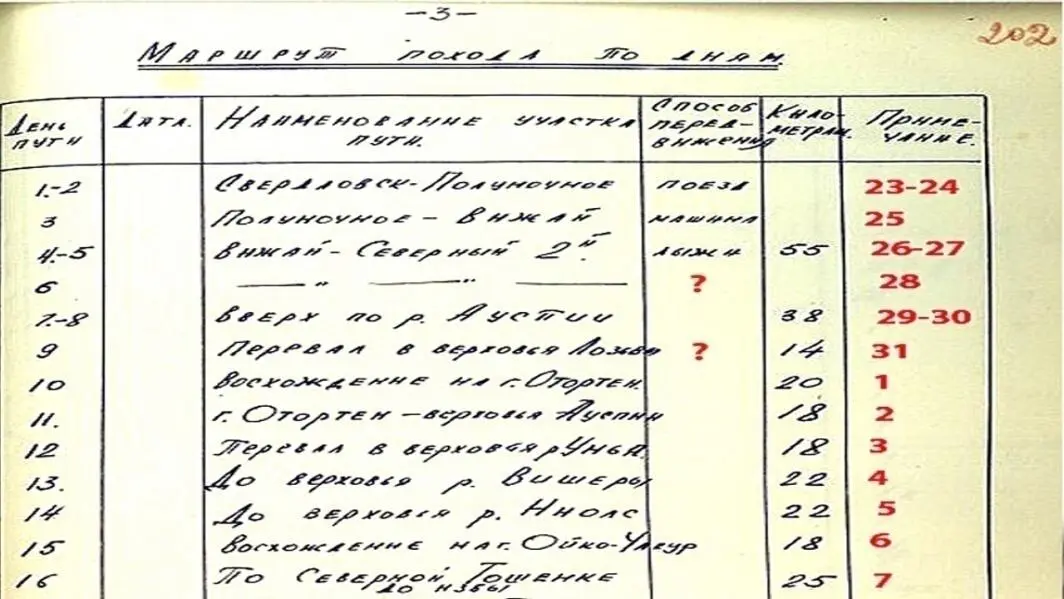 -3-
202
Маршрут похода по дням.
День пути Дата. Наименование участка пути. Способ передвижения Километраж. Примечание.
1.-2 Свердловск-Полуночное поезд 23-24
3 Полуночное - Вижай машина 25
4.-5 Вижай-Северный 2й. лыжи 55 26-27
6 —"— —"— —— ? 28
7.-8 вверх по р. Аустии 38 29-30
9 Перевал в верховья Лозьвы ? 14 31
10 восхождение на г. Отортен. 20 1
11. г. Отортен - верховья Ауспии 18 2
12 Перевал в верховья р Унья. 18 3
13. До верховья р. Вишеры 22 4
14 До верховья р. Ниолс 22 5
15 Восхождение на г. Ойко-Чакур 18 6
16 По Северной Тошемке до избы 25 7